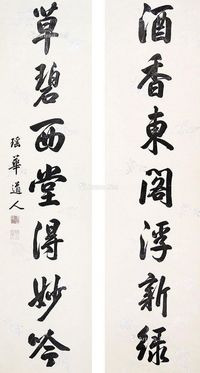 酒香東閣浮新綠
草碧西堂得妙吟
瑶華道人